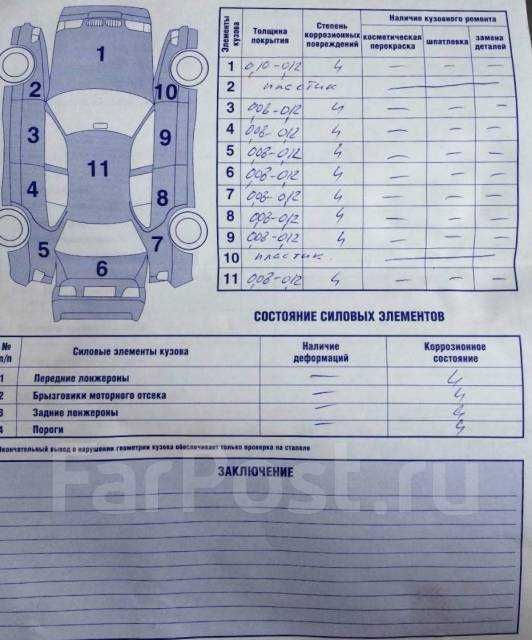 Элементы кузова
Толщина покрытия
Степень коррозионных повреждений
Наличие кузовного ремонта
косметическая перекраска
шпатлевка
замена деталей
1 0,10-0,12 4 — — —
2 пластик
3 0,08-0,12 4 — — —
4 0,08-0,12 4 — — —
5 0,08-0,12 4 — — —
6 0,08-0,12 4 — — —
7 0,08-0,12 4 — — —
8 0,08-0,12 4 — — —
9 0,08-0,12 4 — — —
10 пластик
11 0,08-0,12 4 — — —
1
2
10
3
9
11
4
8
5
7
6
СОСТОЯНИЕ СИЛОВЫХ ЭЛЕМЕНТОВ
№ п/п Силовые элементы кузова Наличие деформаций Коррозионное состояние
1 Передние лонжероны — 4
2 Брызговики моторного отсека — 4
3 Задние лонжероны — 4
4 Пороги — 4
Окончательный вывод о нарушении геометрии кузова обеспечивает только проверка на стапеле
ЗАКЛЮЧЕНИЕ
FarPost.ru